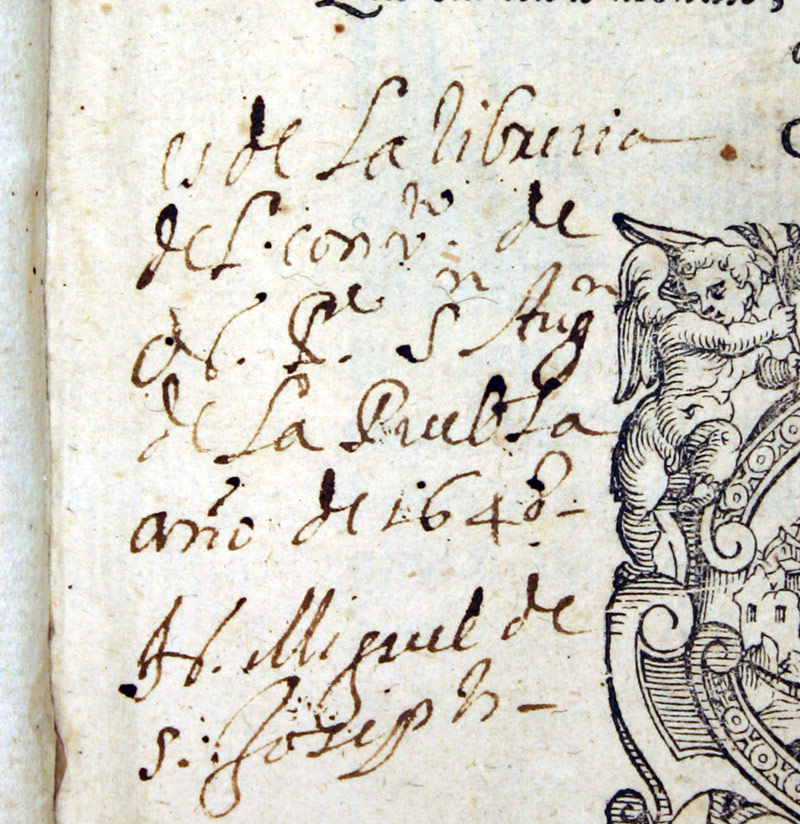 es de La libreria
del convto. de
N. Pe. S. n Augn
de La Puebla
año de 1648
fr. Miguel de
s. Joseph